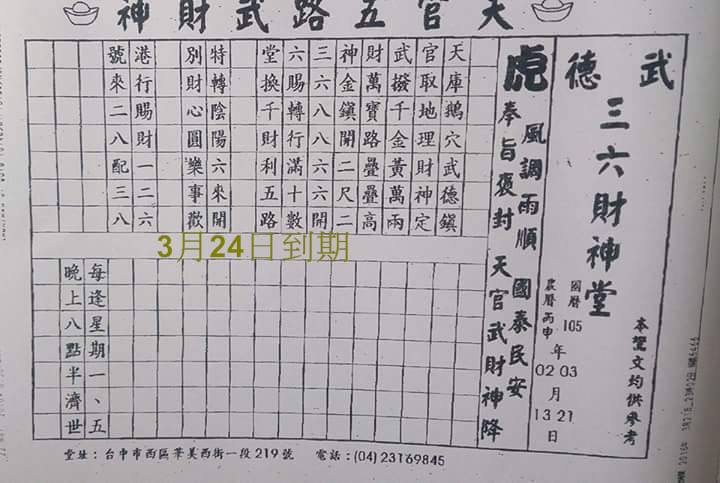 天官五路武財神
武德
三六財神堂
本壇文均供參考
國曆 105 年 03 月 21 日
農曆 丙申 年 02 月 13 日
虎
風調雨順 國泰民安
奉旨褒封 天官武財神降
天庫鵝穴武德鎮
官取地理財神定
武撥千金黃萬兩
財萬寶路疊疊高
神金鎮開二尺二
三六八八六六開
六賜轉行滿十數
堂換千財利五路
特轉陰陽六來開
別財心圓樂事歡
港行賜財一二六
號來二八配三八
3月24日到期
每逢星期一、五
晚上八點半濟世
堂址：台中市西區華美西街一段219號 電話：(04)23169845